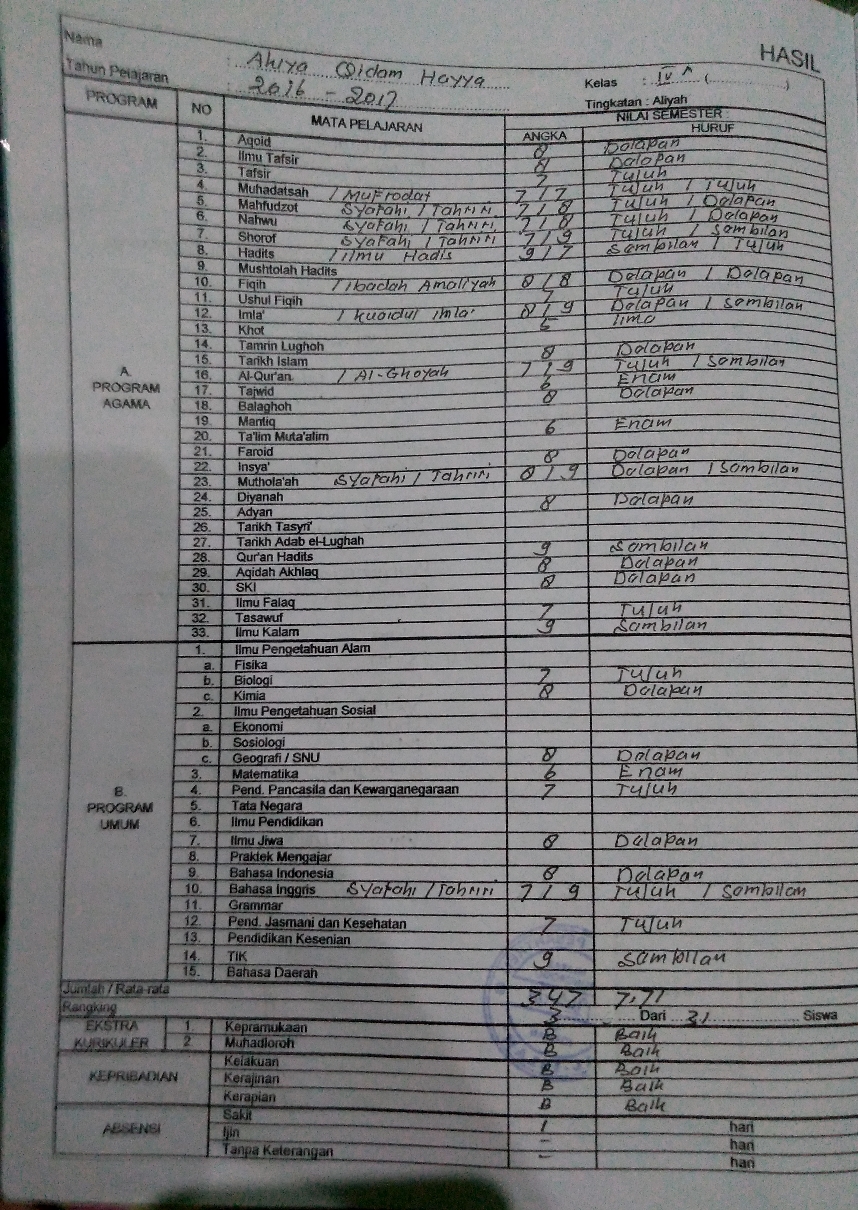 HASIL
Nama : Ahya Qidam Hayya
Kelas : IV A (..............)
Tahun Pelajaran : 2016 - 2017
Tingkatan : Aliyah
PROGRAM NO MATA PELAJARAN NILAI SEMESTER
ANGKA HURUF
A. PROGRAM AGAMA
1. Aqoid 8 Dolapan
2. Ilmu Tafsir 8 Dolapan
3. Tafsir 7 Tujuh
4. Muhadatsah / Mufrodat 7 / 7 Tujuh / Tujuh
5. Mahfudzot Syafahi / Tahriri 7 / 8 Tujuh / Dolapan
6. Nahwu Syafahi / Tahriri 7 / 8 Tujuh / Dolapan
7. Shorof Syafahi / Tahriri 7 / 9 Tujuh / Sombilan
8. Hadits / ilmu Hadis 9 / 7 Sombilan / Tujuh
9. Mushtolah Hadits
10. Fiqih / ibadah Amaliyah 8 / 8 Dolapan / Dolapan
11. Ushul Fiqih 7 Tujuh
12. Imla' / kuoidul imla' 8 / 9 Dolapan / Sombilan
13. Khot 5 limo
14. Tamrin Lughoh 8 Dolapan
15. Tarikh Islam 7 / 9 Tujuh / Sombilan
16. Al-Qur'an / Al-Ghoyah 6 Enam
17. Tajwid 8 Dolapan
18. Balaghoh
19. Mantiq 6 Enam
20. Ta'lim Muta'alim
21. Faroid 8 Dolapan
22. Insya' 8 / 9 Dolapan / Sombilan
23. Muthola'ah Syafahi / Tahriri
24. Diyanah 8 Dolapan
25. Adyan
26. Tarikh Tasyri'
27. Tarikh Adab el-Lughah 9 Sombilan
28. Qur'an Hadits 8 Dolapan
29. Aqidah Akhlaq 8 Dolapan
30. SKI
31. Ilmu Falaq 7 Tujuh
32. Tasawuf 9 Sombilan
33. Ilmu Kalam
B. PROGRAM UMUM
1. Ilmu Pengetahuan Alam
a. Fisika 7 Tujuh
b. Biologi 8 Dolapan
c. Kimia
2. Ilmu Pengetahuan Sosial
a. Ekonomi
b. Sosiologi
c. Geografi / SNU 8 Dolapan
3. Matematika 6 Enam
4. Pend. Pancasila dan Kewarganegaraan 7 Tujuh
5. Tata Negara
6. Ilmu Pendidikan
7. Ilmu Jiwa 8 Dolapan
8. Praktek Mengajar
9. Bahasa Indonesia 8 Dolapan
10. Bahasa Inggris Syafahi / Tahriri 7 / 9 Tujuh / Sombilan
11. Grammar
12. Pend. Jasmani dan Kesehatan 7 Tujuh
13. Pendidikan Kesenian
14. TIK 9 Sambilan
15. Bahasa Daerah
Jumlah / Rata-rata 347 7.71
Rangking 3 Dari 31 Siswa
EKSTRA KURIKULER
1. Kepramukaan B Baik
2 Muhadloroh B Baik
KEPRIBADIAN
Kelakuan B Baik
Kerajinan B Baik
Kerapian B Baik
ABSENSI
Sakit 1 hari
Ijin - hari
Tanpa Keterangan - hari